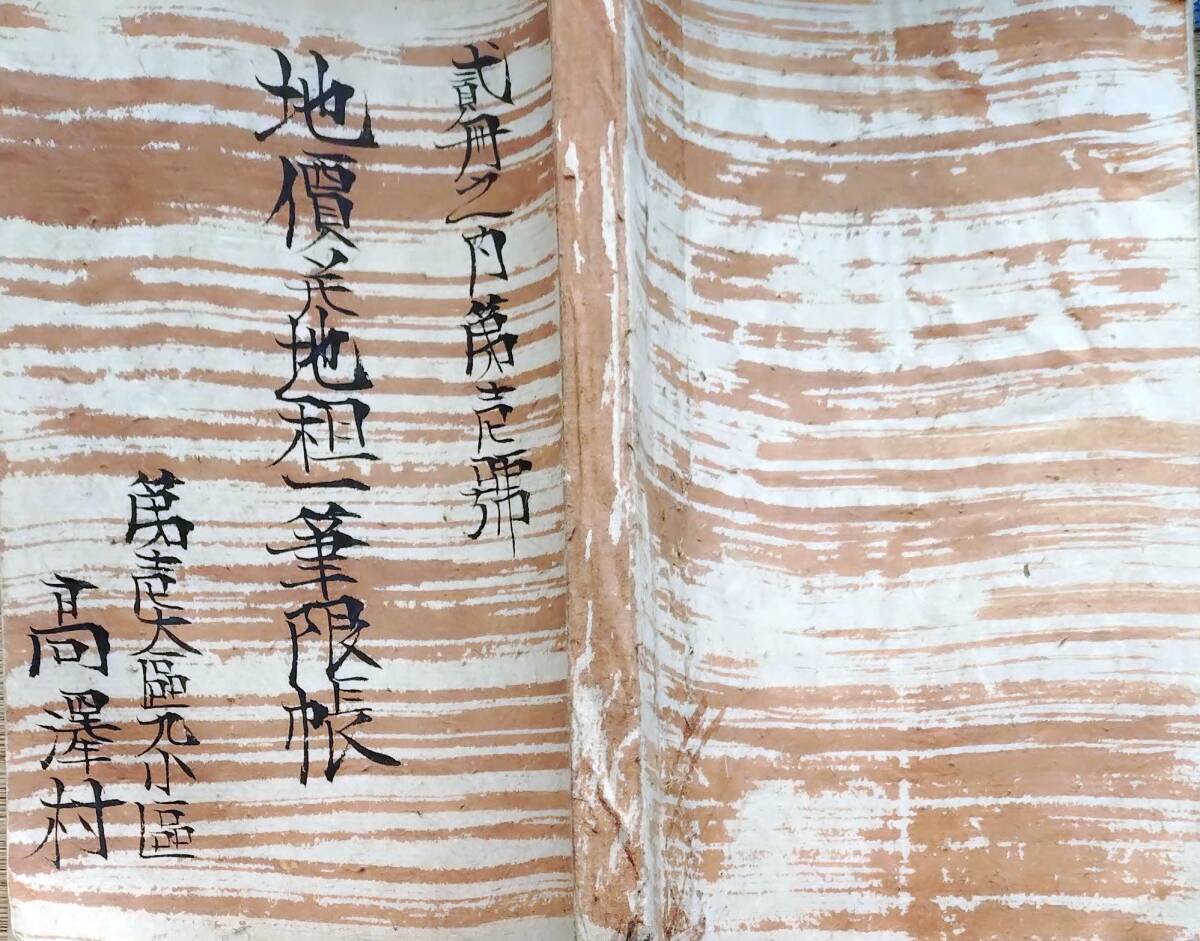 貳冊之内第壱號
地價地租一筆限帳
第壱大區九小區
高澤村